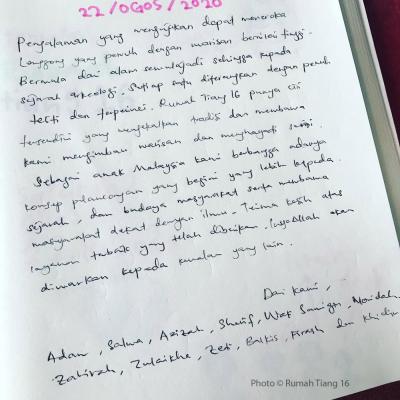 22/OGOS/2020
Pengalaman yang mengujakan dapat meneroka
Lenggong yang penuh dengan warisan bernilai tinggi.
Bermula dari alam semulajadi sehingga kepada
sejarah arkeologi. Setiap satu diterangkan dengan penuh
teliti dan terperinci. Rumah Tiang 16 punya ciri
tersendiri yang mengekalkan tradisi dan membawa
kami mengimbau warisan dan menghayati
Sebagai anak Malaysia kami berbangga adanya
konsep pelancongan yang begini yang lebih kepada
sejarah, dan budaya masyarakat serta membawa
masyarakat dekat dengan ilmu. Terima kasih atas
layanan terbaik yang telah diberikan. InsyaAllah akan
diwarkan kepada kenalan yang lain.
Dari kami,
Adam, Salwa, Azizah, Sherif, Wak Naidah,
Zahirah, Zulaikha, Zeti, Balkis, Firash dan Khidir
Photo © Rumah Tiang 16